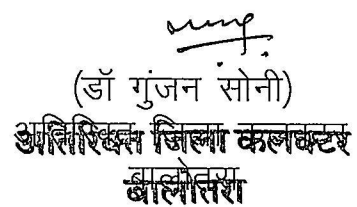 (डॉ गुंजन सोनी)
अतिरिक्त जिला कलक्टर
बालोतरा